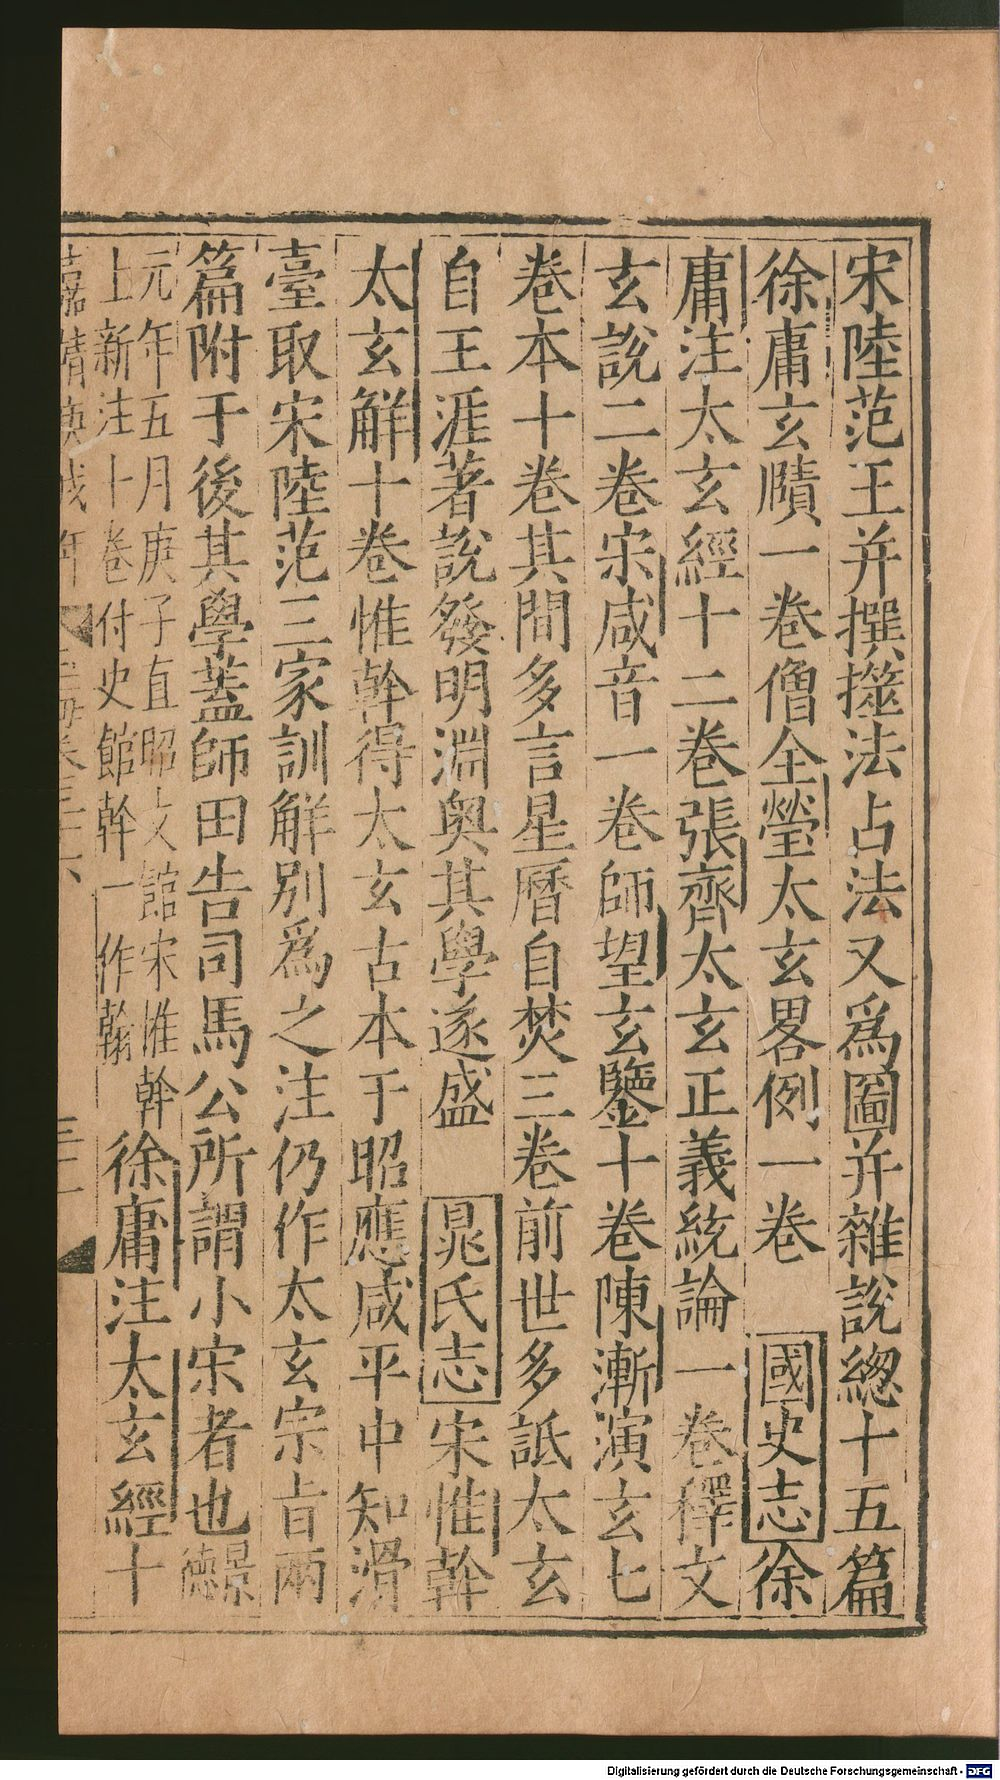 宋陸范王并撰揲法占法又爲圖并雜說總十五篇
徐庸玄賾一卷僧全瑩太玄畧例一卷 國史志徐
庸注太玄經十二卷張齊太玄正義統論一卷釋文
玄說二卷宋咸音一卷師望玄鑒十卷陳漸演玄七
卷本十卷其間多言星曆自焚三卷前世多詆太玄
自王涯著說發明淵奥其學遂盛 晁氏志宋惟幹
太玄解十卷惟幹得太玄古本于昭應咸平中知滑
臺取宋陸范三家訓解別爲之注仍作太玄宗旨兩
篇附于後其學蓋師田告司馬公所謂小宋者也景德
元年五月庚子直昭文館宋惟幹
上新注十卷付史館幹一作翰
徐庸注太玄經十
嘉靖庚戌年
玉海卷三十六
三十一
Digitalisierung gefördert durch die Deutsche Forschungsgemeinschaft - DFG